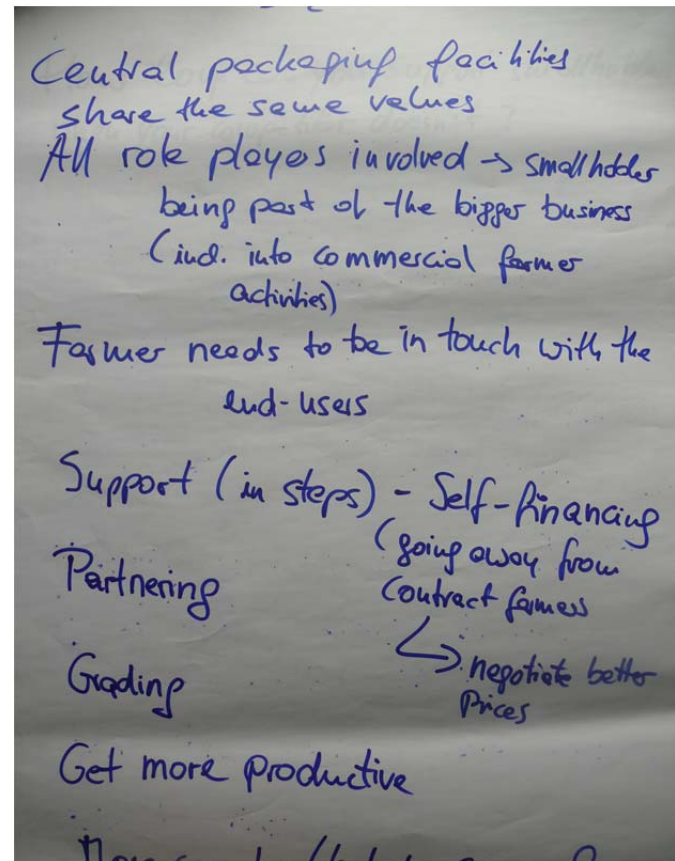 Central packaging facilities
share the same values
All role players involved → smallholder
being part of the bigger business
(incl. into commercial farmer
activities)
Farmer needs to be in touch with the
end-users
Support (in steps) - Self-financing
(going away from
Partnering
contract farmers
↳ negotiate better
Grading
prices
Get more productive